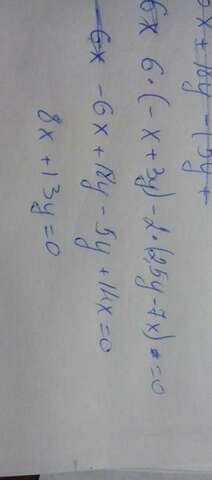 6x + 18y - 15y +
6x 6·(-x + 3y) - 2·(2,5y - 7x) = 0
-6x - 6x + 18y - 5y + 14x = 0
8x + 13y = 0